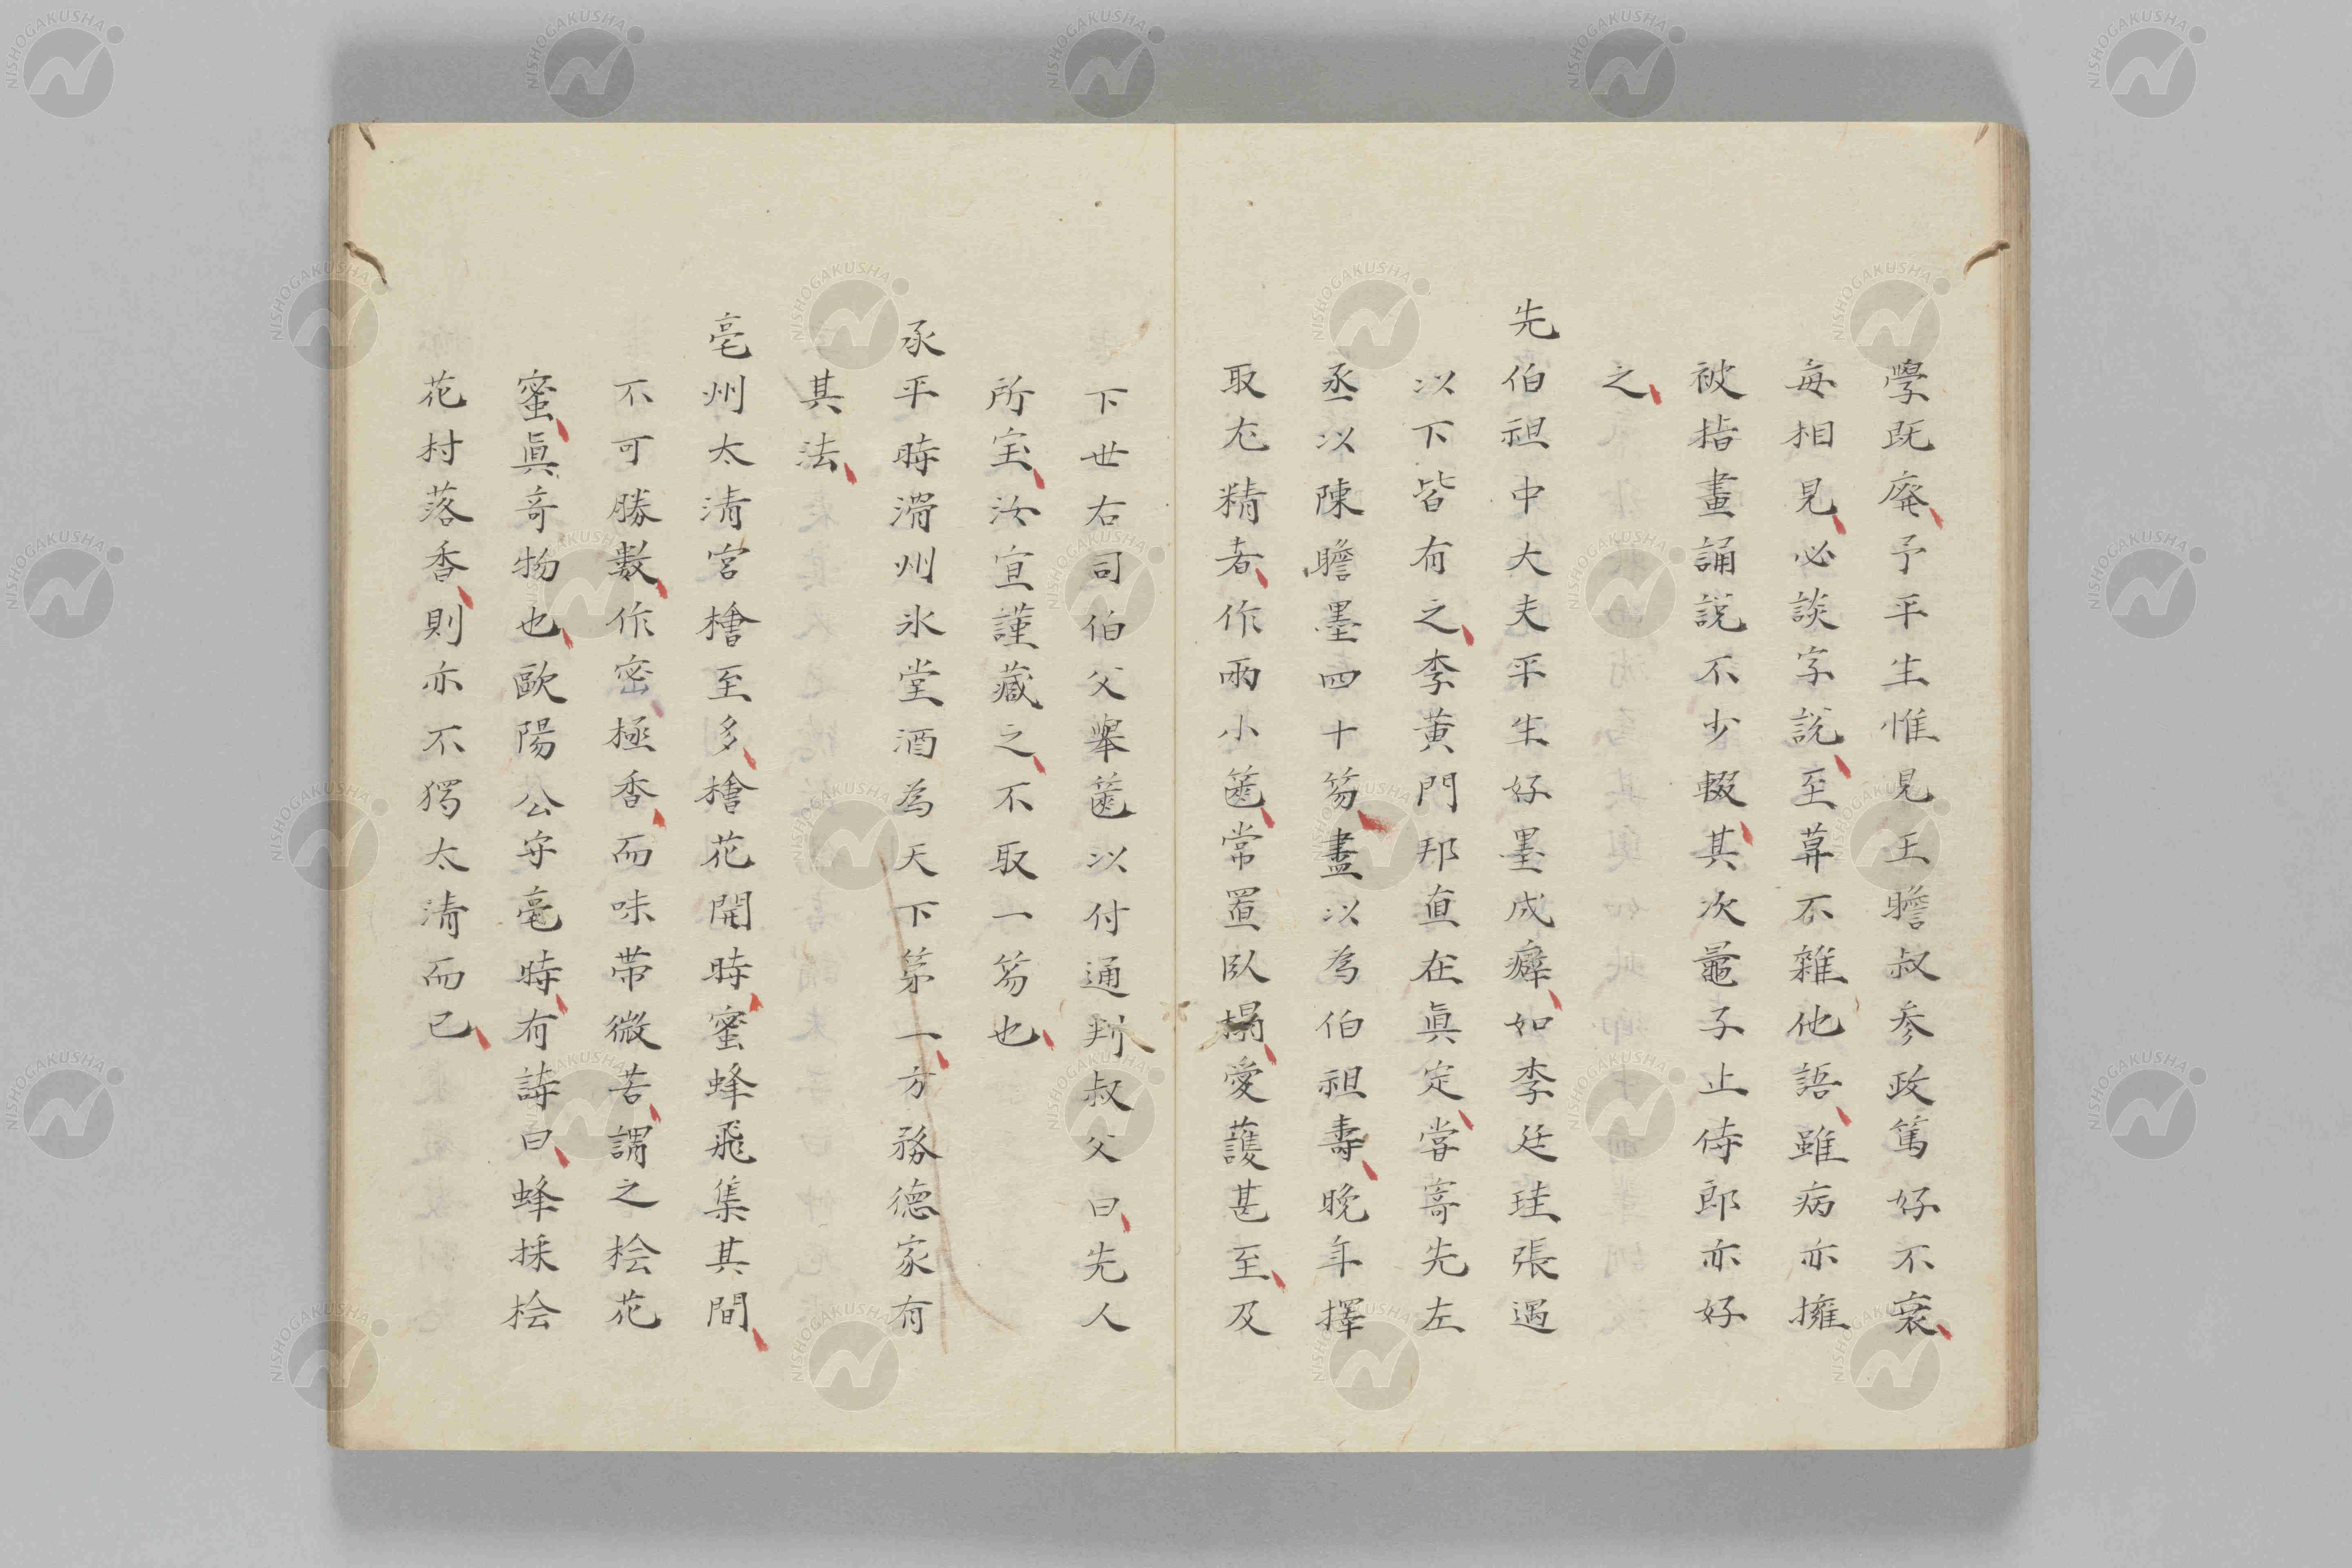 學既廃予平生惟見王瞻叔参政篤好不衰
毎相見必談字説至暮不雜他語雖病亦擁
被指畫誦説不少輟其次鼂子止侍郎亦好
之
先伯祖中大夫平生好墨成癖如李廷珪張遇
以下皆有之李黄門邦直在真定甞寄先左
丞以陳瞻墨四十笏盡以為伯祖壽晩年擇
取尤精者作兩小篋常置臥榻愛護甚至及
下世右司伯父舉篋以付通判叔父曰先人
所宝汝宜謹藏之不取一笏也
承平時滑州氷堂酒為天下苐一方務德家有
其法
亳州太清宮檜至多檜花開時蜜蜂飛集其間
不可勝數作密極香而味帯微苦謂之桧花
蜜真竒物也歐陽公守亳時有詩曰蜂採桧
花村落香則亦不獨太清而已
NISHOGAKUSHA